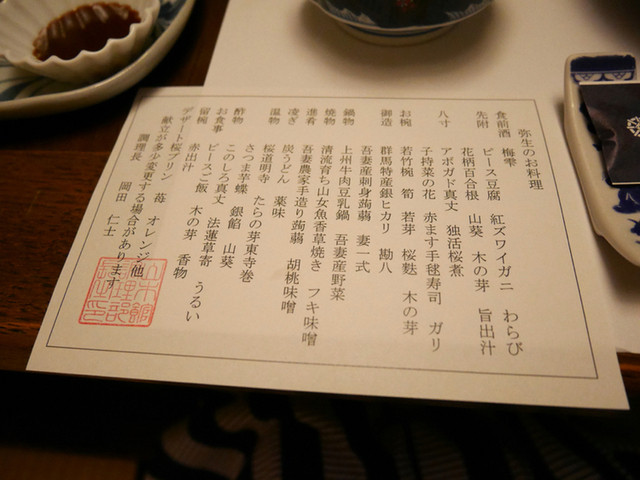 弥生のお料理
食前酒 梅雫
先附 ピース豆腐 紅ズワイガニ わらび
花柄百合根 山葵 木の芽 旨出汁
八寸 アボガド真丈 独活桜煮
子持菜の花 赤ます手毬寿司 ガリ
お椀 若竹椀 筍 若芽 桜麩 木の芽
御造 群馬特産銀ヒカリ 勘八
吾妻産刺身蒟蒻 妻一式
鍋物 上州牛肉豆乳鍋 吾妻産野菜
焼物 清流育ち山女魚香草焼き フキ味噌
進肴 吾妻農家手造り蒟蒻 胡桃味噌
凌ぎ 炭うどん 薬味
温物 桜道明寺 たらの芽東寺巻
さつま芋蝶 銀餡 山葵
酢物 このしろ真丈 法蓮草寄 うるい
お食事 ピースご飯 木の芽 香物
留椀 赤出汁
デザート 桜プリン 苺 オレンジ他
献立が多少変更する場合があります
調理長 岡田 仁士